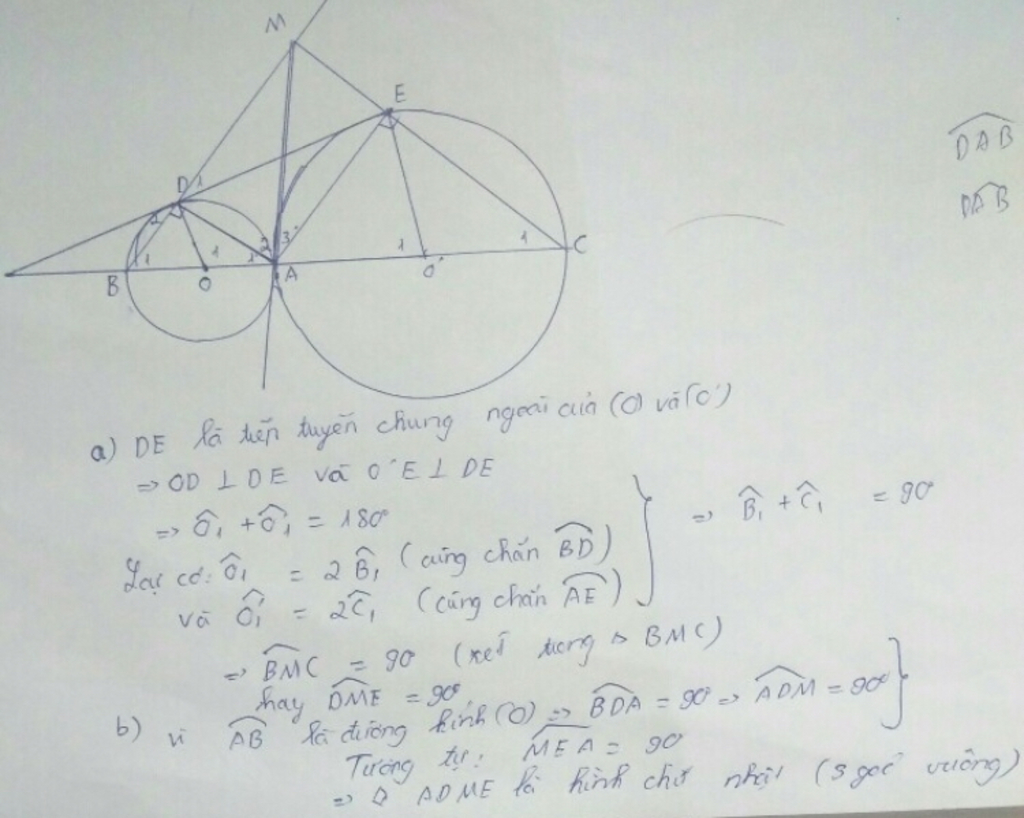 M
E
D 1
2
DAB
DAB
1 1 1 2 3
1 1 C
B O A O'
a) DE là tiếp tuyến chung ngoài của (O) và (O')
=> OD ⊥ DE và O'E ⊥ DE
=> Ô₁ + Ô'₁ = 180°
Lại có: Ô₁ = 2 B̂₁ (cùng chắn BD)
và Ô'₁ = 2Ĉ₁ (cùng chắn AE)
=> B̂₁ + Ĉ₁ = 90°
=> BMC = 90° (xét trong Δ BMC)
hay DME = 90°
b) vì AB là đường kính (O) => BDA = 90° => ADM = 90°
Tương tự: MEA = 90
=> ADME là hình chữ nhật (3 góc vuông)